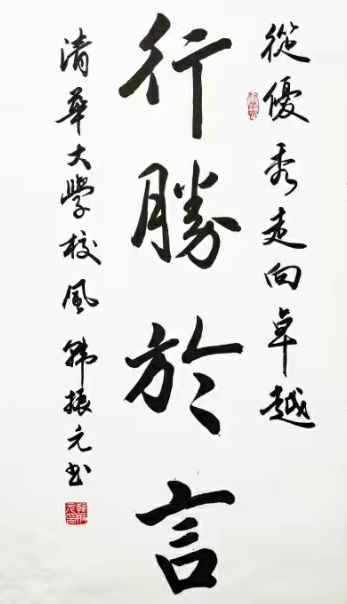 從優秀走向卓越
行勝於言
清華大學校風 韩振元书